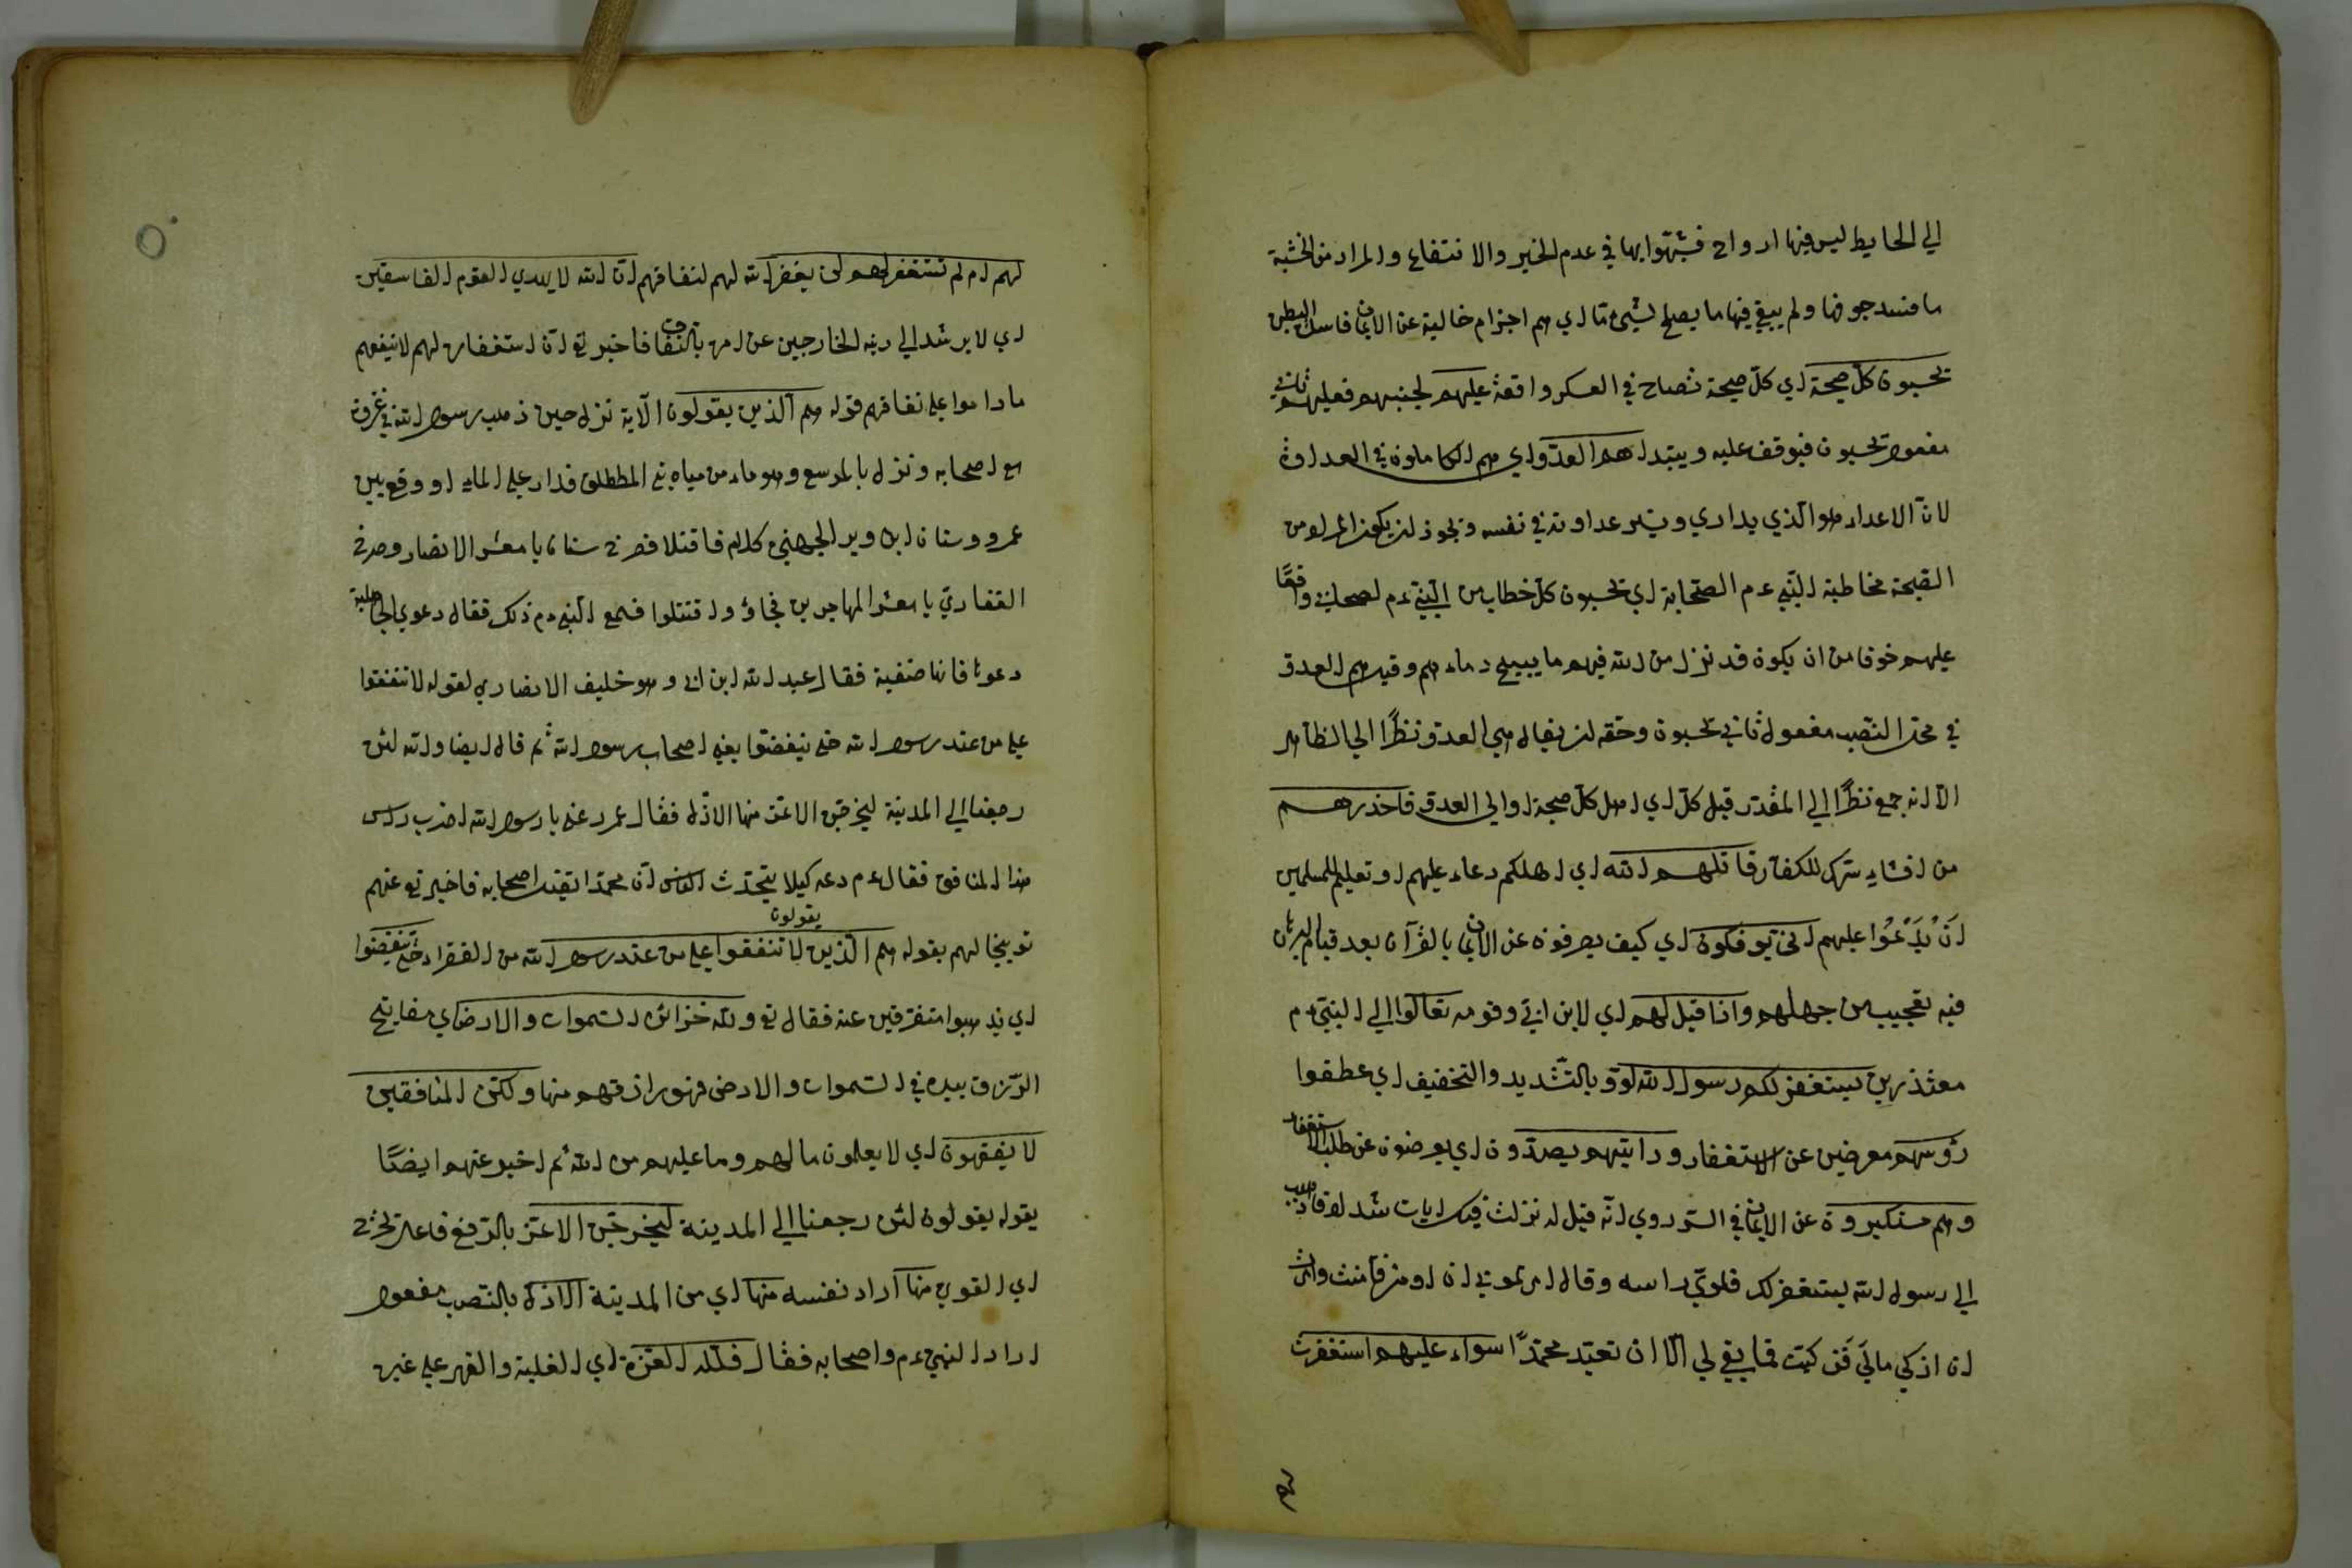 الي الحايط ليس فيها ارواح فشبّهوا بها في عدم الخير والانتفاع والمراد من الخشبة
ما فسد جوفها ولم يبق فيها ما يصلح لشيء ما اي هم اجرام خالية عن الايمان فاسد البطن
يحسبون كلّ صيحة اي كلّ صيحة تصاح في العسكر واقعة عليهم لجبنهم فعليهم ثاني
مفعول يحسبون فيوقف عليه ويبتدا هم العدوّ اي هم الكاملون في العداوة
لانّ الاعداء هو الذي يداري ويسر عداوته في نفسه ويجوز ان يكون المراد من
الصيحة مخاطبة النبي عم الصحابة اي يحسبون كلّ خطاب من النبي عم لصحابي واقعًا
عليهم خوفا من ان يكون قد نزل من الله فيهم ما يبيح دماءهم وقيل هم العدو
في محل النصب مفعول ثاني يحسبون وحقه ان يقال هي العدو نظرًا الي الظاهر
الا انه جمع نظرًا الي المقدر قبل كلّ اي اهل كلّ صيحة او الي العدو فاحذرهم
من افشاء سرك للكفار قاتلهم الله اي اهلكهم دعاء عليهم او تعليم للمسلمين
اَنْ يَدْعُوا عليهم انى يوفكون اي كيف يصرفون عن الايمان بالقرآن بعد قيام البرهان
فيه تعجيب من جهلهم واذا قيل لهم اي لابن ابيّ وقومه تعالوا الي النبيّ عم
معتذرين يستغفر لكم رسول الله لوّوا بالتّشديد والتخفيف اي عطفوا
رؤسهم معرضين عن الاستغفار ورايتهم يصدّون اي يعرضون عن طلب الاستغفار
وهم مستكبرون عن الايمان في السر روي انّه قيل له نزلت فيك ايات شداد فاذهب
الي رسول الله يستغفر لك فلوّي راسه وقال امرتموني ان اومن فآمنت وامرتم
ان ازكي مالي فزكيت فما بقي لي الّا ان تعبد محمّدًا سواء عليهم استغفرت
لهم ام لم تستغفر لهم لن يغفر الله لهم لنفاقهم انّ الله لا يهدي القوم الفاسقين
اي لا يرشد الي دينه الخارجين عن امره بالنفاق فاخبر تع انّ استغفاره لهم لا ينفعهم
ما داموا علي نفاقهم قوله هم الّذين يقولون الآية نزل حين ذهب رسول الله في غزوة
مع اصحابه ونزل بالمرسع وهو ماء من مياه بني المططلق فدار علي الماء او وقع بين
عمرو وسنان ابن وبر الجهني كلام فاقتلا فصرخ سنان يا معشر الانصار وصرخ
الغفاريّ يا معشر المهاجرين فجاؤ واقتتلوا فسمع النبي عم ذلك فقال دعوي الجاهلية
دعوها فانها ضفية فقال عبد الله ابن ابي وهو خليف الانصاري لقوله لا تنفقوا
علي من عند رسول الله حتي ينفضّوا يعني اصحاب رسول الله ثم قال ايضا والله لئن
رجعنا الي المدينة ليخرجن الاعز منها الاذل فقال عمر دعني يا رسول الله اضرب راس
هذا المنافق فقال عم دعه كيلا يتحدّث الناس انّ محمّدا يقتل اصحابه فاخبر تع عنهم
توبيخا لهم بقوله هم الّذين يقولون لا تنفقوا علي من عند رسول الله من الفقراء حتي ينفضّوا
اي يذهبوا متفرقين عنه فقال تع ولله خزائن السّموات والارض اي مفاتيح
الرّزق بيده في السّموات والارض فهو رازقهم منها ولكنّ المنافقين
لا يفقهون اي لا يعلمون ما لهم وما عليهم من الله ثم اخبر عنهم ايضًا
بقوله يقولون لئن رجعنا الي المدينة ليخرجنّ الاعزّ بالرّفع فاعل يخرج
اي القوي منها اراد نفسه منها اي من المدينة الاذلّ بالنّصب مفعول
اراد النبي عم واصحابه فقال فللّه العزّة اي الغلبة والقهر علي غيره